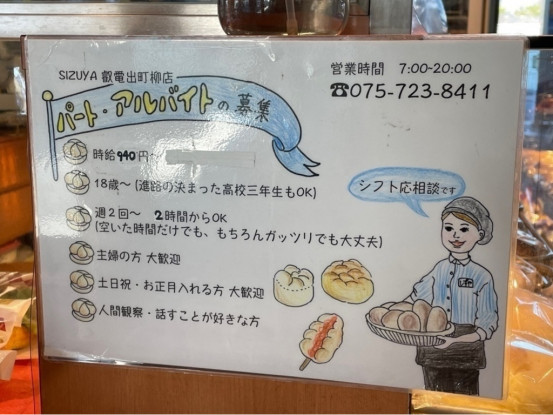 SIZUYA 叡電出町柳店
パート・アルバイトの募集
営業時間 7:00~20:00
☎075-723-8411
時給940円~
18歳~(進路の決まった高校三年生もOK)
週2回~ 2時間からOK
(空いた時間だけでも、もちろんガッツリでも大丈夫)
主婦の方 大歓迎
土日祝・お正月入れる方 大歓迎
人間観察・話すことが好きな方
シフト応相談です